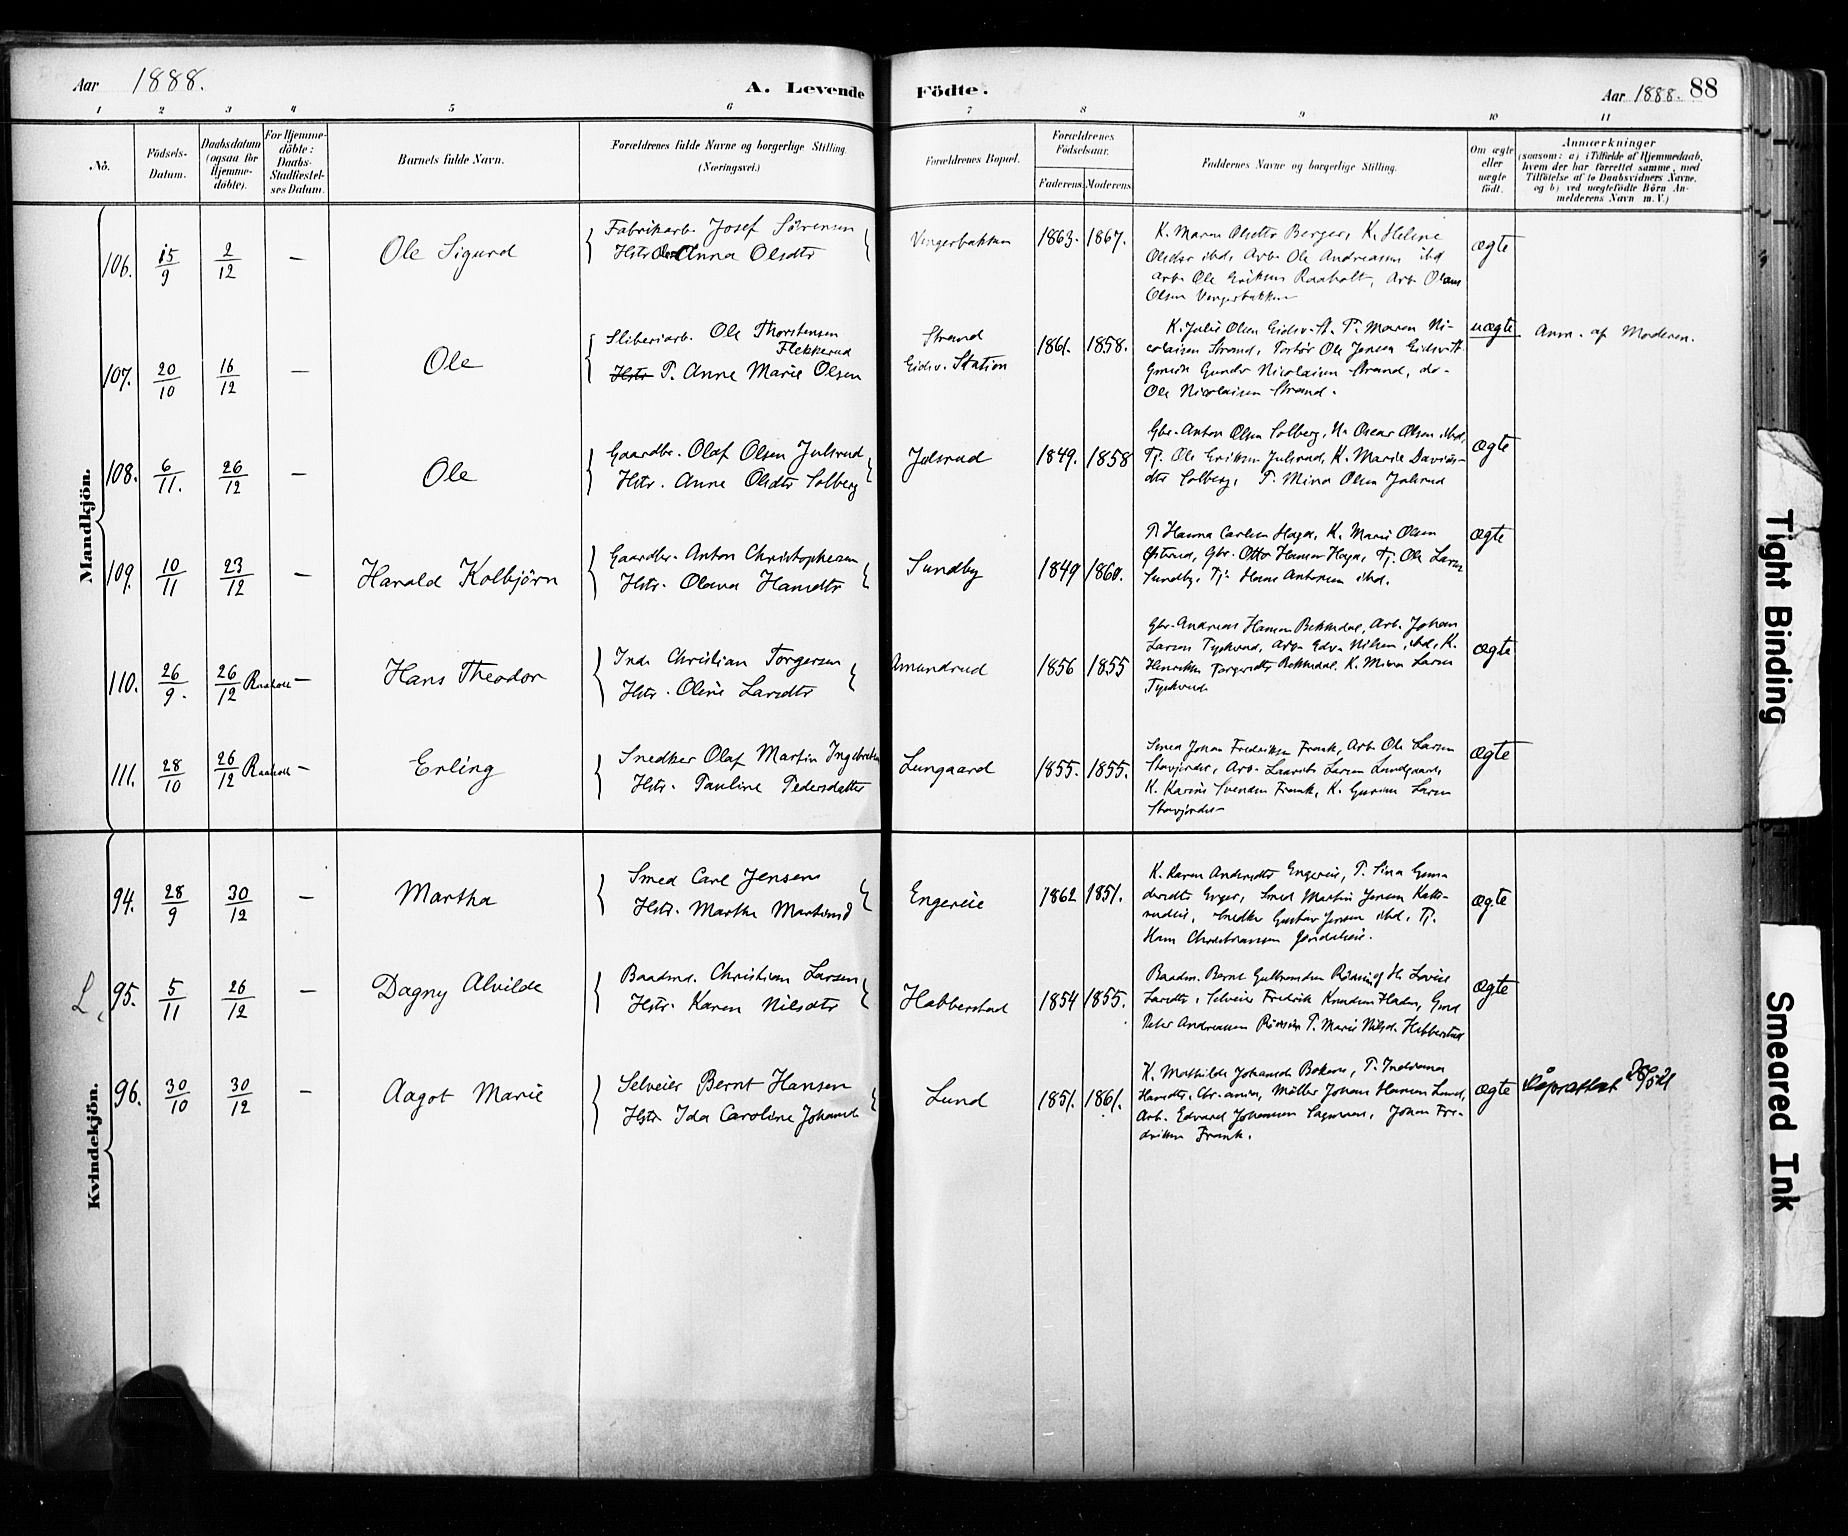 Aar 1888.
A. Levende Födte.
Aar 1888. 88
1 2 3 4 5 6 7 8 9 10 11
No.
Födsels-
Datum.
Daabsdatum
(ogsaa for
Hjemme-
döbte).
For Hjemme-
döbte:
Daabs-
Stadfæstel-
ses Datum.
Barnets fulde Navn.
Forældrenes fulde Navne og borgerlige Stilling
(Næringsvei.)
Forældrenes Bopæl.
Forældrenes
Födselsaar.
Faderens. Moderens.
Faddernes Navne og borgerlige Stilling.
Om ægte
eller
uægte
födt.
Anmærkninger
(saasom: a) i Tilfælde af Hjemmedaab,
hvem der har forrettet samme, med
Tilföielse af to Daabsvidners Navne.
og b) ved uægtefödte Börn An-
melderens Navn m. V.)
Mandkjön.
106. 15/9 2/12 — Ole Sigurd
Fabrikarb. Josef Sörensen
Hstr Anna Olsdtr
Vengerbakken 1863. 1867.
K. Maren Olsdtr Berger, K. Heline
Olsdtr ibd, Arb. Ole Andreasen ibd
Arb. Ole Eriksen Raaholt, Arb. Olaus
Olsen Vengerbakken
ægte
107. 20/10 16/12 — Ole
Sliberiarb. Ole Thorstensen
Flekkerud
Hstr P. Anne Marie Olsen
Strand
Eidsv. Station
1861. 1858.
K. Julie Olsen Eidsv. St. P. Maren Ni-
colaisen Strand, Ole Jensen Eidsv. St.
Gunder Nicolaisen Strand, do-
Ole Nicolaisen Strand.
uægte Anm. af Moderen.
108. 6/11. 26/12 — Ole
Gaardbr. Olaf Olsen Julsrud
Hstr. Anne Olsdtr Solberg
Julsrud 1849. 1858
Gbr. Anton Olsen Solberg, Oscar Olsen ibd,
Tj. Ole Eriksen Julsrud, K. Marie Davids-
dtr Solberg, P. Mina Olsen Julsrud
ægte
109. 10/11 23/12 — Harald Kolbjörn
Gaardbr. Anton Christophersen
Hstr. Olava Hansdtr
Sundby 1849 1860.
P. Hanna Carlsen Haga, K. Marie Olsen
Gbr. Otto Hansen Haga, Tj. Ole Larsen
Sundby, Tj. Hans Antonsen ibd.
ægte
110. 26/9. 26/12 Raaholt — Hans Theodor
Inds. Christian Torgersen
Hstr. Oline Larsdtr
Amundrud 1856 1855
Gbr. Andreas Hansen Bekkedal, Arb. Johan
Larsen Tyskerud, Arb. Edv. Nilsen, ibd, K.
Henrikke Torgersdtr Bekkedal. K. Mina Larsen
Tyskerud
ægte
111. 28/10 26/12 Raaholt — Erling
Snedker Olaf Martin Ingebretsen
Hstr. Pauline Pedersdatter
Lungaard 1855. 1855.
Smed Johan Fredriksen Frank, Arb. Ole Larsen
Arb. Laurits Larsen Lundgaard,
K. Karine Svendsen Frank, K. Larsen
ægte
Kvindekjön.
94. 28/9 30/12 — Martha
Smed Carl Jensen
Hstr. Martha Martinsd
Engereie 1862 1851.
K. Karen Andersdtr Engereie, P. Sina Gun-
dersdtr Enger, Smed Martin Jensen
Snedker Gustav Jensen ibd, Tj.
Hans Christiansen
ægte
L, 95. 5/11 26/12 — Dagny Alvilde
Baadmd. Christian Larsen
Hstr. Karen Nilsdtr
Habberstad 1854 1855.
Baadm. Bernt Gulbrandsen og H. Lovise
Larsdtr, Selveier Fredrik Knudsen
Peter Andreassen P. Marie Nilsd. Habberstad
ægte
96. 30/10 30/12 — Aagot Marie
Selveier Bernt Hansen
Hstr Ida Caroline Johansd
Lund 1851. 1861.
K. Mathilde Johansdtr Bakken, P. Indiana
Hansdtr, Møller Johan Hansen Lund,
Arb. Edvard Johansen Johan Fre-
driksen Frank.
ægte
Tight Binding
Smeared Ink